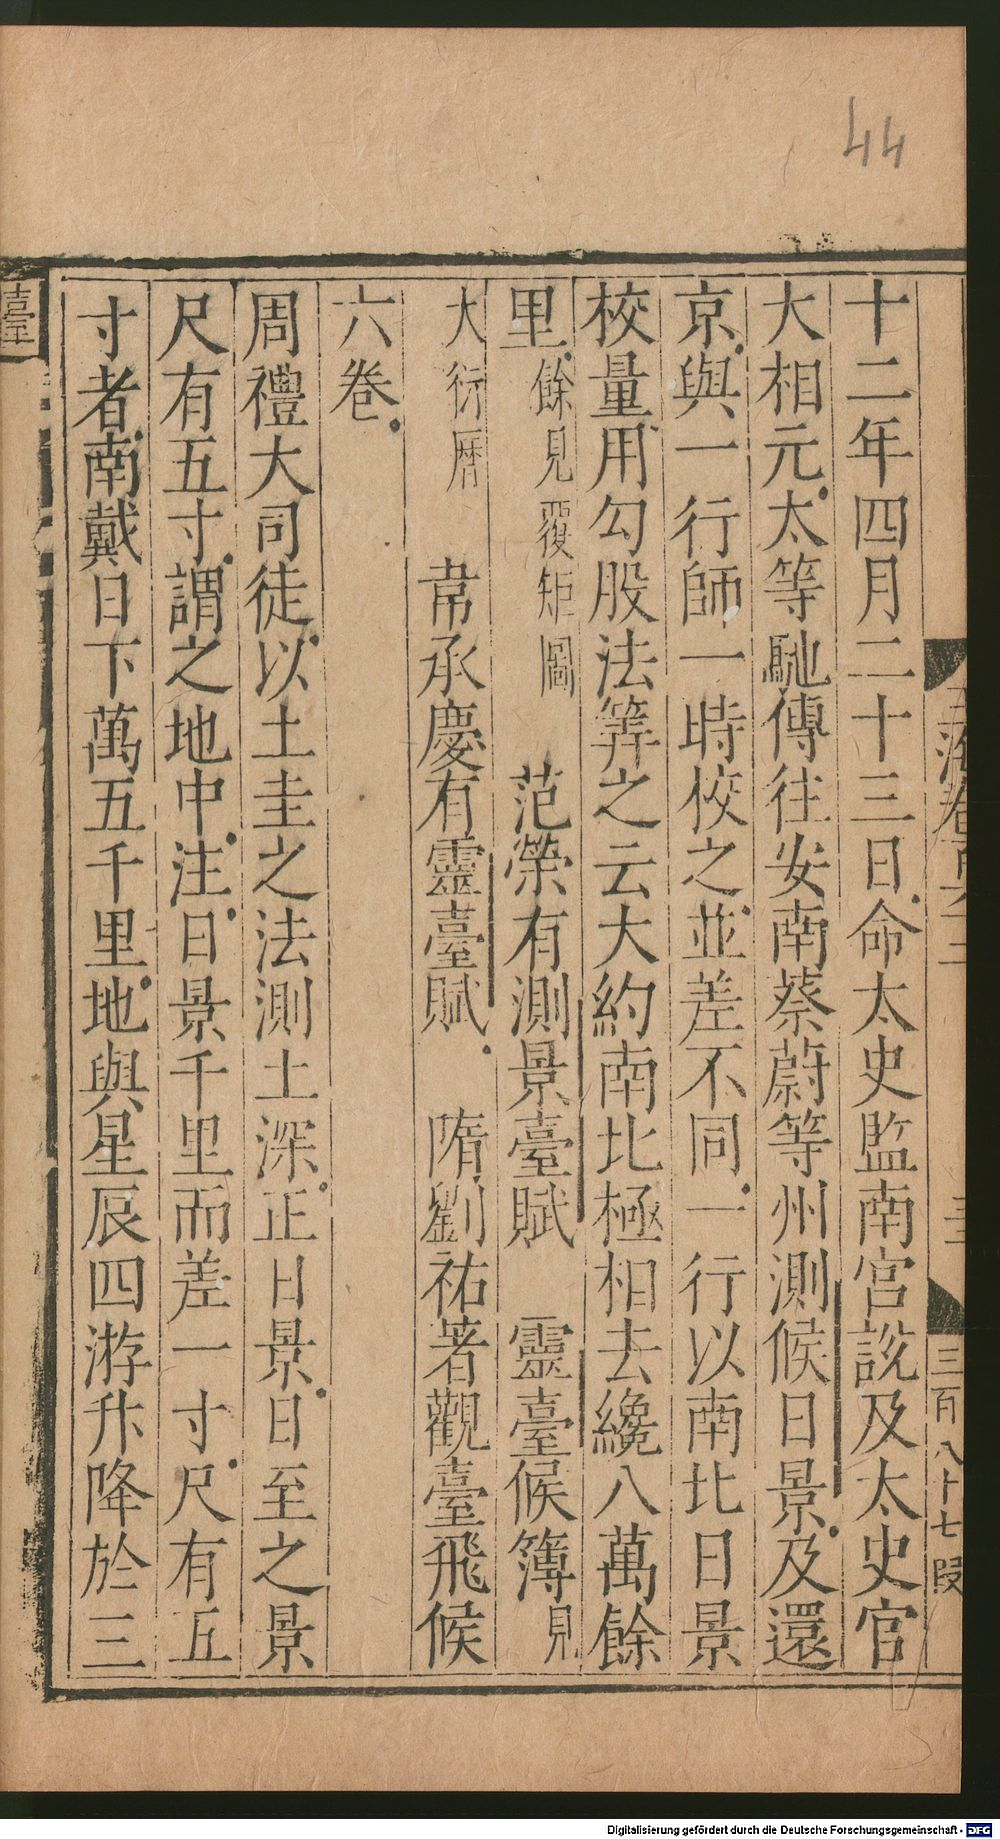 44
十二年四月二十三日命太史監南宮說及太史官
大相元太等馳傳往安南蔡蔚等州測候日景及還
京與一行師一時校之並差不同一行以南北日景
校量用勾股法筭之云大約南北極相去纔八萬餘
里餘見覆矩圖 范榮有測景臺賦 靈臺候簿見
大衍曆 韋承慶有靈臺賦 隋劉祐著觀臺飛候
六卷
周禮大司徒以土圭之法測土深正日景日至之景
尺有五寸謂之地中注日景千里而差一寸尺有五
寸者南戴日下萬五千里地與星辰四游升降於三
臺
三百八十七段
Digitalisierung gefördert durch die Deutsche Forschungsgemeinschaft - DFG